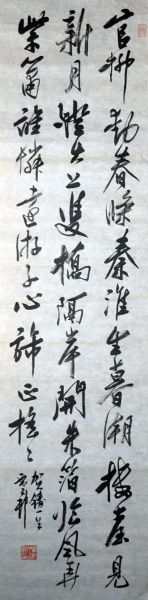 官柳動春條秦淮生暮潮樓臺見
新月燈火上雙橋隔岸開朱箔臨風弄
紫簫誰憐遠游子心旆正搖〻
賀鑄一首